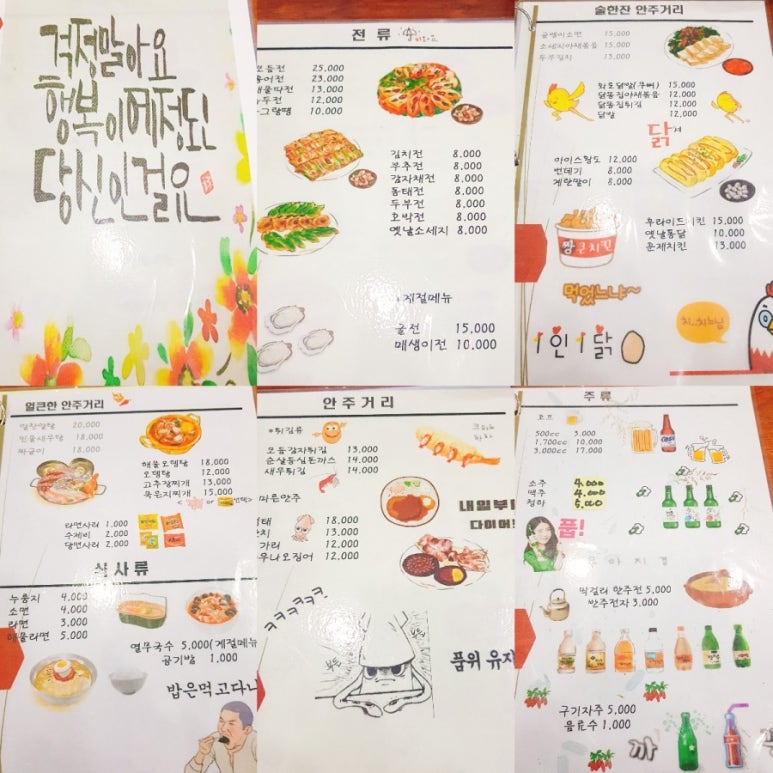 걱정말아요
행복이예정된
당신인걸요
전 류
모듬전 25,000
23,000
해물파전 13,000
12,000
10,000
김치전 8,000
부추전 8,000
감자채전 8,000
동태전 8,000
두부전 8,000
호박전 8,000
옛날소세지 8,000
계절메뉴
굴전 15,000
매생이전 10,000
술한잔 안주거리
골뱅이소면 15,000
소세지야채볶음 15,000
두부김치 13,000
15,000
닭똥집야채볶음 12,000
닭똥집튀김 12,000
닭발 12,000
닭
아이스황도 12,000
번데기 8,000
계란말이 8,000
짱큰치킨
후라이드치킨 15,000
옛날통닭 10,000
훈제치킨 13,000
먹었느냐~
치..치느님
1인1닭
얼큰한 안주거리
20,000
민물새우탕 18,000
짜글이 18,000
해물오뎅탕 18,000
오뎅탕 12,000
고추장찌개 13,000
묵은지찌개 15,000
or
라면사리 1,000
수제비 2,000
당면사리 2,000
식사류
누룽지 4,000
소면 4,000
라면 3,000
해물라면 5,000
열무국수 5,000(계절메뉴
공기밥 1,000
밥은먹고다니
안주거리
*튀김류
모듬감자튀김 13,000
순살등심돈까스 14,000
새우튀김 14,000
마른안주
18,000
13,000
12,000
12,000
내일부터
다이어트
ㅋㅋㅋㅋㅋ
부들
부들
품위 유지
주 류
호프
500cc 3,000
1,700cc 10,000
3,000cc 17,000
소주 4,000
맥주 4,000
청하 5,000
품!
막걸리 한주전 5,000
반주전자 3,000
구기자주 5,000
음료수 1,000
캬